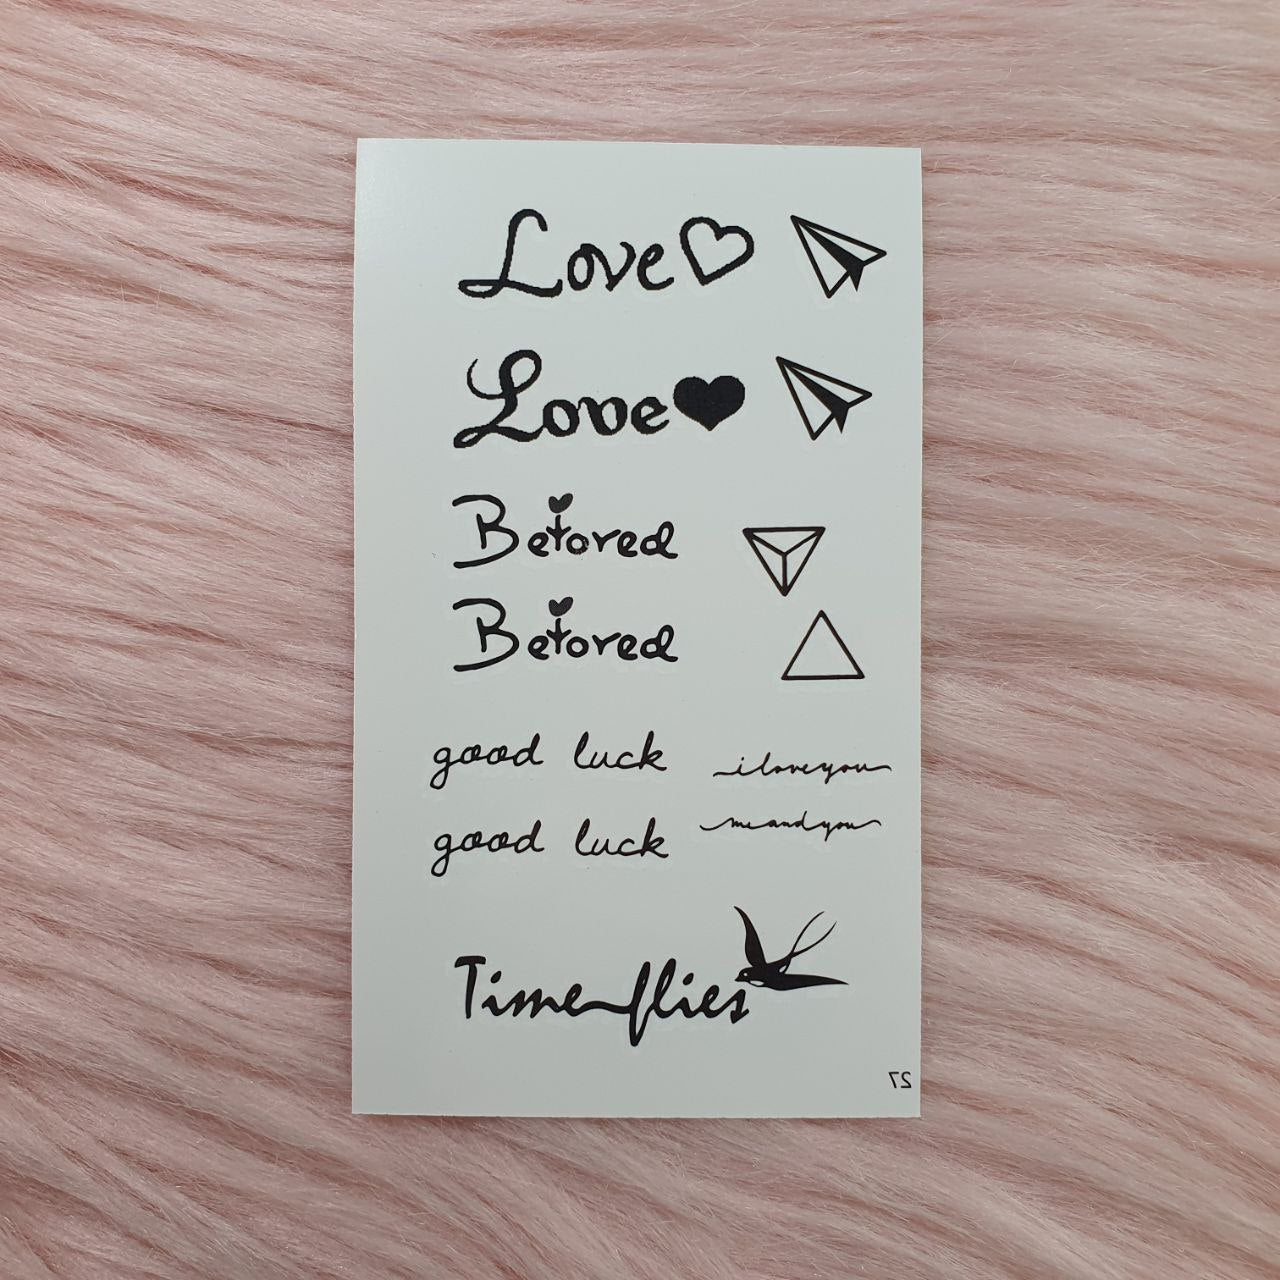 Love
Love
Beloved
Beloved
good luck
i love you
good luck
me and you
Time flies
27